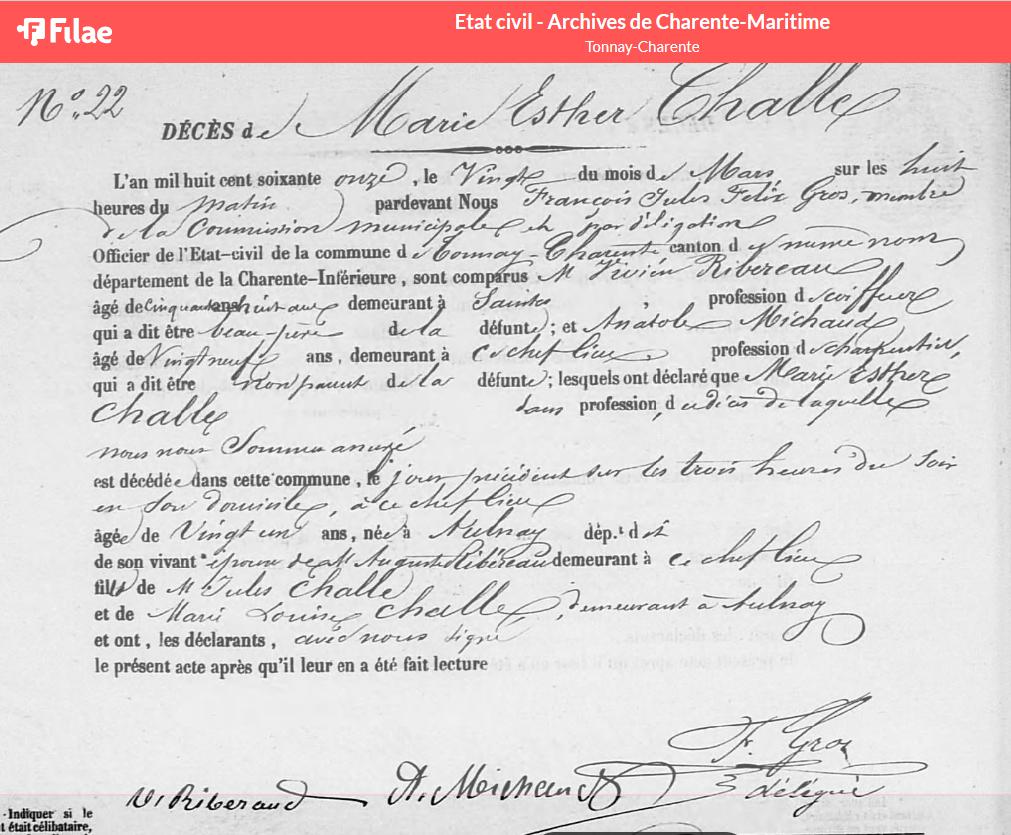 Filae
Etat civil - Archives de Charente-Maritime
Tonnay-Charente
N.º 22
DÉCÈS de Marie Esther Challe
L'an mil huit cent soixante onze, le Vingt du mois de Mars sur les huit
heures du matin pardevant Nous François Jules Felix Gros, membre
de la Commission municipale et par délégation
Officier de l'Etat-civil de la commune de Tonnay-Charente canton du même nom
département de la Charente-Inférieure, sont comparus M Vivien Ribereau
âgé de Cinquante huit ans demeurant à Saintes, profession de coiffeur
qui a dit être beau-père de la défunte; et Anatole Michaud
âgé de Vingt neuf ans, demeurant à ce chef lieu, profession de charpentier,
qui a dit être non parent de la défunte; lesquels ont déclaré que Marie Esther
Challe sans profession, au décès de laquelle
nous nous sommes assuré
est décédée dans cette commune, le jour précédent sur les trois heures du soir
en son domicile, à ce chef lieu
âgée de Vingt un ans, née à Aulnay dép.t dit
de son vivant épouse de M. Auguste Ribereau demeurant à ce chef lieu
fille de M Jules Challe
et de Marie Louise Challe, demeurant à Aulnay
et ont, les déclarants, avec nous signé
le présent acte après qu'il leur en a été fait lecture
F. Gros
V. Riberaud A. Michaud délégué
- Indiquer si le
t était célibataire,